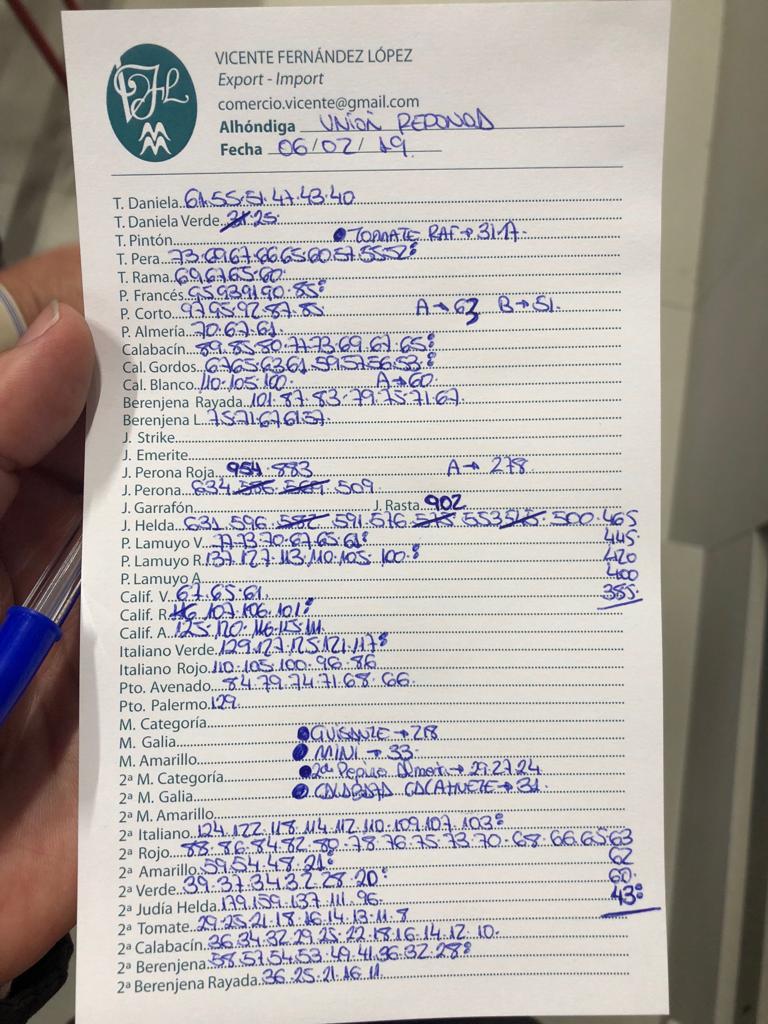 VICENTE FERNÁNDEZ LÓPEZ
Export - Import
comercio.vicente@gmail.com
Alhóndiga UNION REDONDA
Fecha 06/02/19
T. Daniela 61.55.51.47.43.40
T. Daniela Verde 31.25
T. Pintón ● TOMATE RAF→ 31.17.
T. Pera 73.69.67.66.65.60.57.55.52
T. Rama 69.67.65.60
P. Francés 95.93.91.90.85
P. Corto 97.95.92.87.85 A→63 B→51.
P. Almería 70.67.61.
Calabacín 89.85.80.77.73.69.67.65
Cal. Gordos 67.65.63.61.59.57.56.53
Cal. Blanco 110.105.100. A→60.
Berenjena Rayada 101.87.83.79.75.71.67.
Berenjena L 75.71.67.61.57
J. Strike
J. Emerite
J. Perona Roja 954.883 A→ 278
J. Perona 634 509
J. Garrafón J. Rasta 902
J. Helda 631.596.582.591.576 553 500.465
P. Lamuyo V. 77.73.70.67.65.61 445
P. Lamuyo R. 137.127.113.110.105.100 420
P. Lamuyo A 400
Calif. V. 67.65.61. 385.
Calif. R. 116.107.106.101
Calif. A. 125.120.116.115.111
Italiano Verde 129.127.125.121.117
Italiano Rojo 110.105.100.96.86
Pto. Avenado 84.79.74.71.68.66
Pto. Palermo 129
M. Categoría
M. Galia ● GUISANTE→ 218
M. Amarillo ● MINI → 33
2ª M. Categoría ● 2da Pepino Almería→ 29.27.24
2ª M. Galia ● CALABAZA CACAHUETE→ 31.
2ª M. Amarillo
2ª Italiano 124.122.118.114.112.110.109.107.103
2ª Rojo 88.86.84.82.80.78.76.75.73.70.68.66.65.63
2ª Amarillo 59.54.48.21 62
2ª Verde 39.37.34.32.28.20 60
2ª Judía Helda 179.159.137.111.96. 43
2ª Tomate 29.25.21.18.16.14.13.11.8
2ª Calabacín 36.34.32.29.25.22.18.16.14.12.10.
2ª Berenjena 58.57.54.53.49.41.36.32.28
2ª Berenjena Rayada 36.25.21.16.11